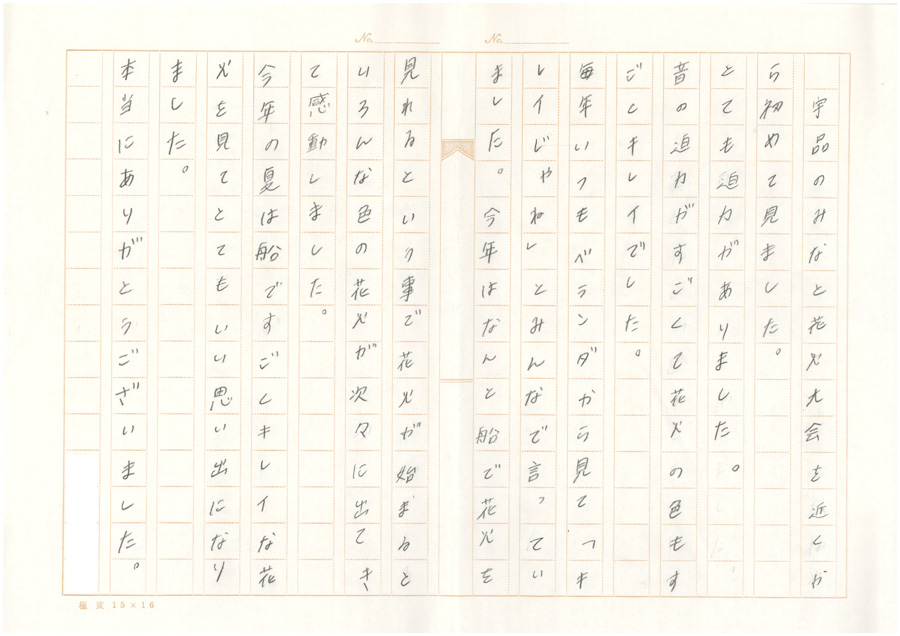 No.
No.
宇品のみなと花火大会を近くか
ら初めて見ました。
とても迫力がありました。
音の迫力がすごくて花火の色もす
ごとキレイでした。
毎年いつもベランダから見てっキ
レイじゃねしとみんなで言ってい
ました。今年はなんと船で花火を
見れるという事で花火が始まると
いろんな色の花火が次々に出てき
て感動しました。
今年の夏は船ですごしキレイな花
火を見てとてもいい思い出になり
ました。
本当にありがとうございました。
15×16